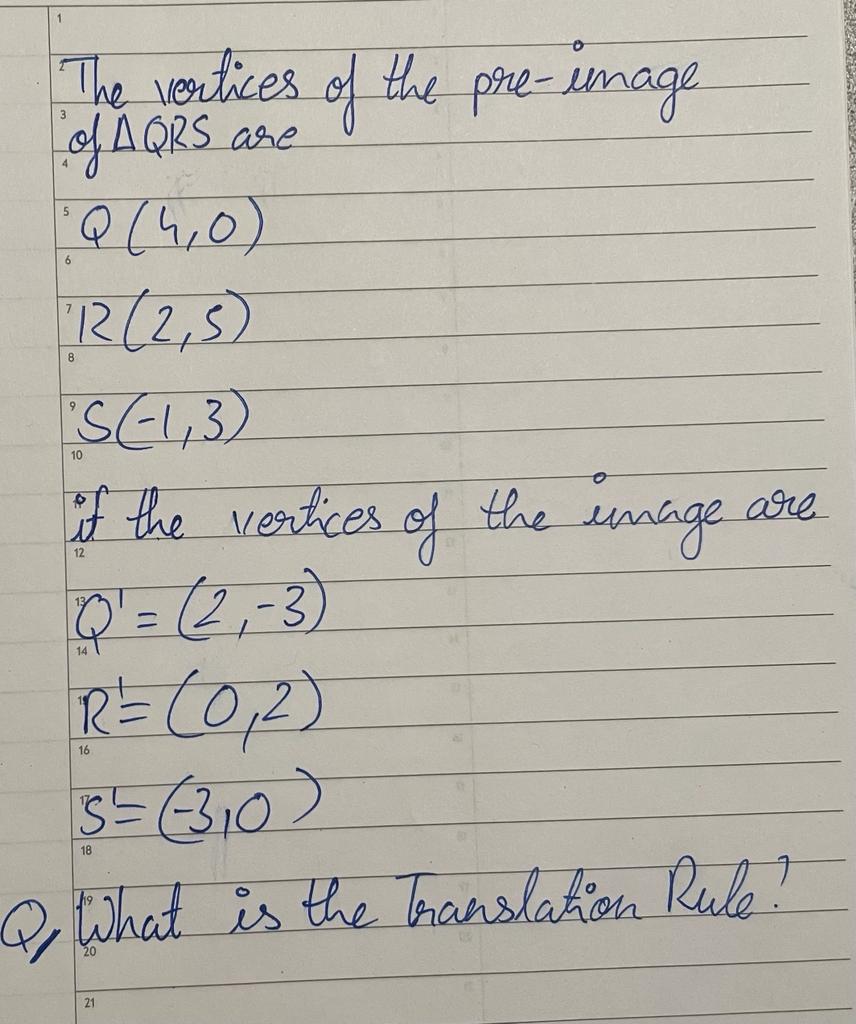 The vertices of the pre-image
of Δ QRS are
Q (4,0)
R (2,5)
S(-1,3)
if the vertices of the image are
Q' = (2,-3)
R' = (0,2)
S' = (-3,0)
Q, What is the Translation Rule?
1
2
3
4
5
6
7
8
9
10
12
13
14
16
17
18
19
20
21